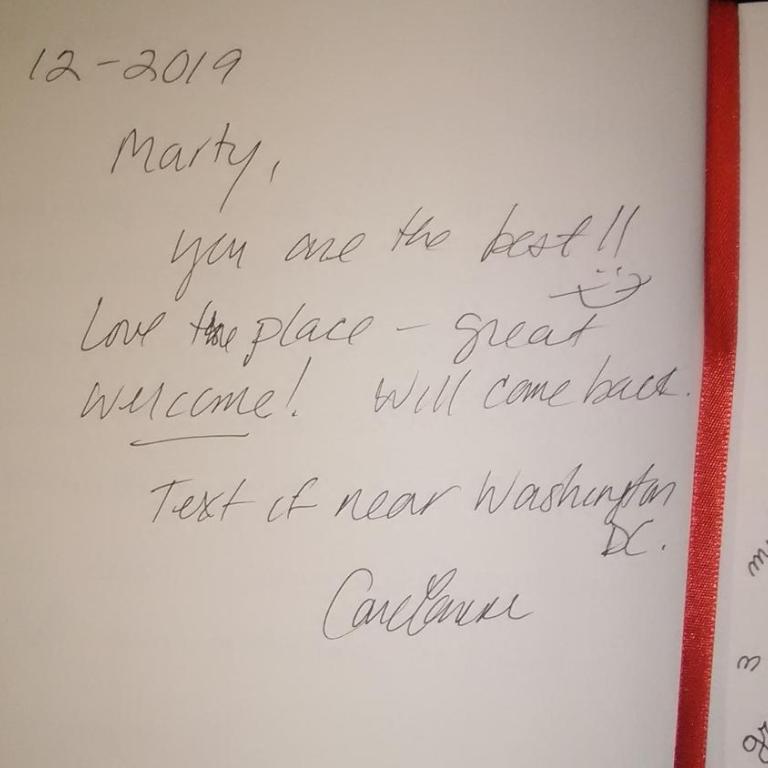 12-2019
Marty,
you are the best!!
Love the place - great
welcome! Will come back.
Text if near Washington
DC.
m
m